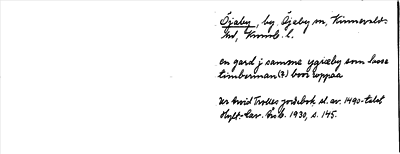 Öjaby, by. Öjaby sn, Kinnevalds
hd, Kronob. l.
en gard j samme ygiæby som lasse
timberman(?) boor oppaa
Ur Arvid Trolles jordebok sl. av 1490-talet
Hylt.-Cav. årsb. 1930, s. 145.